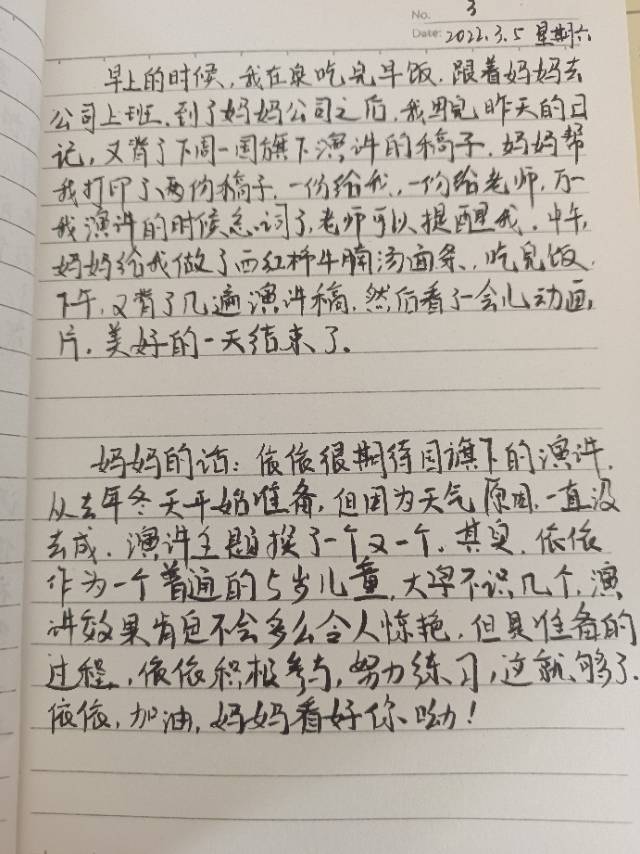 No. 3
Date: 2022.3.5 星期六
早上的时候,我在家吃完早饭,跟着妈妈去
公司上班,到了妈妈公司之后,我画完昨天的日
记,又背了下周一国旗下演讲的稿子,妈妈帮
我打印了两份稿子,一份给我,一份给老师,万一
我演讲的时候忘词了,老师可以提醒我,中午,
妈妈给我做了西红柿牛腩汤面条,吃完饭,
下午,又背了几遍演讲稿,然后看了一会儿动画
片,美好的一天结束了。
妈妈的话:依依很期待国旗下的演讲,
从去年冬天开始准备,但因为天气原因,一直没
去成,演讲主题换了一个又一个。其实,依依
作为一个普通的5岁儿童,大字不识几个,演
讲效果肯定不会多么令人惊艳,但是准备的
过程,依依积极参与,努力练习,这就够了.
依依,加油,妈妈看好你呦!